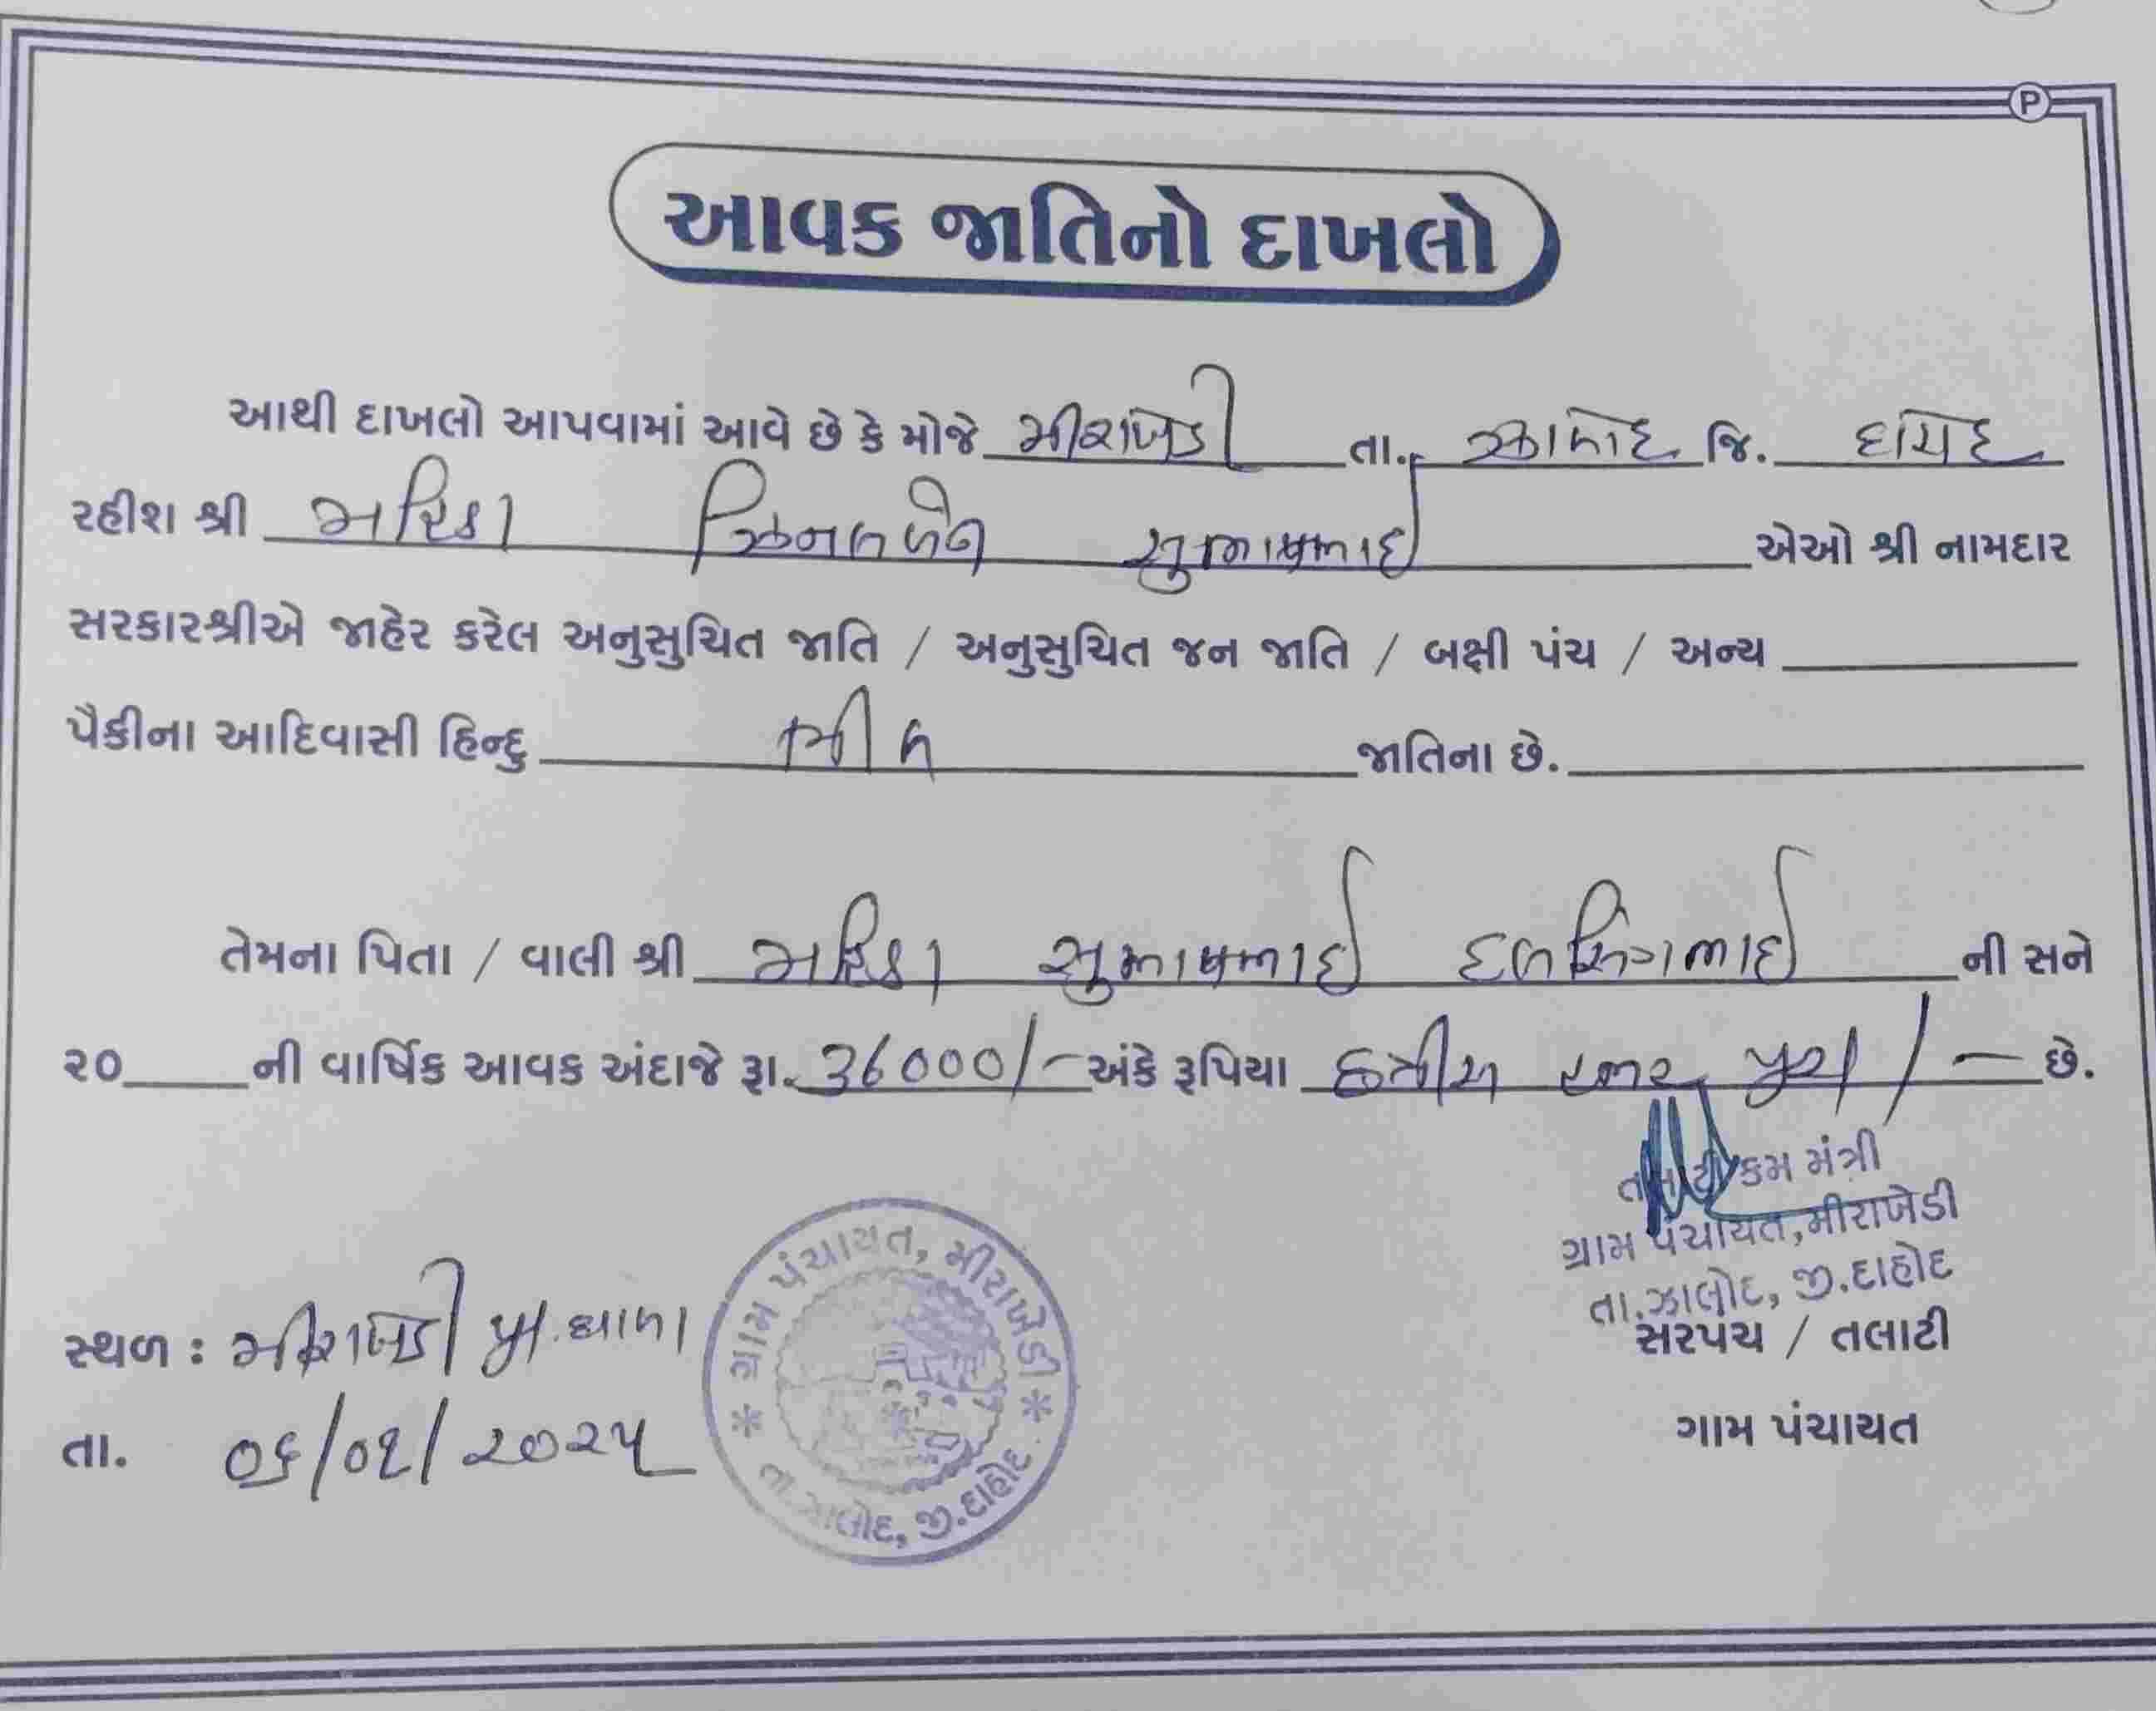 P
આવક જાતિનો દાખલો
આથી દાખલો આપવામાં આવે છે કે મોજે મીરાખેડી તા. ઝાલોદ જિ. દાહોદ
રહીશ શ્રી સુભાષભાઈ એઓ શ્રી નામદાર
સરકારશ્રીએ જાહેર કરેલ અનુસુચિત જાતિ / અનુસુચિત જન જાતિ / બક્ષી પંચ / અન્ય
પૈકીના આદિવાસી હિન્દુ ભીલ જાતિના છે.
તેમના પિતા / વાલી શ્રી સુભાષભાઈ દલસિંગભાઈ ની સને
૨૦ ની વાર્ષિક આવક અંદાજે રૂા. 36000/- અંકે રૂપિયા છત્રીસ હજાર પુરા /- છે.
તલાટી કમ મંત્રી
ગ્રામ પંચાયત, મીરાખેડી
તા.ઝાલોદ, જી.દાહોદ
સરપંચ / તલાટી
ગામ પંચાયત
સ્થળ : મીરાખેડી
તા. ૦૬/૦૧/૨૦૨૫
* ગ્રામ પંચાયત, મીરાખેડી *
તા.ઝાલોદ, જી.દાહોદ